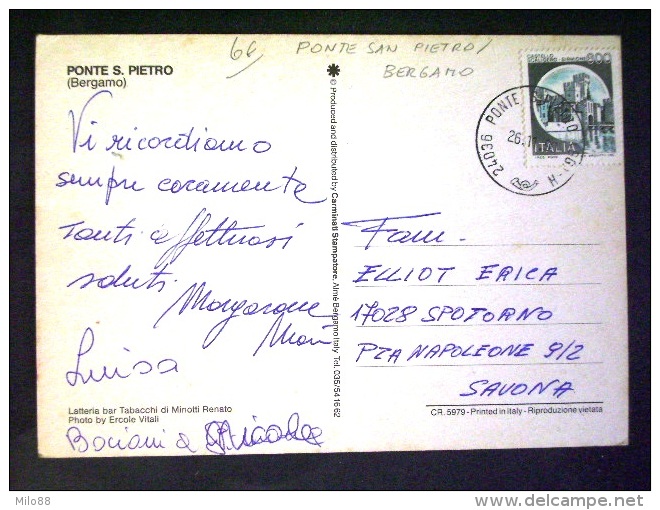 66 PONTE SAN PIETRO/
BERGAMO
PONTE S. PIETRO
(Bergamo)
Vi ricordiamo
sempre caramente
tanti affettuosi
saluti
Luisa
Latteria bar Tabacchi di Minotti Renato
Photo by Ercole Vitali
Bacioni
© Produced and distributed by Carminati Stampatore, Almè Bergamo Italy Tel. 035/541662
800
ITALIA
24036 PONTE
Fam.
ELLIOT ERICA
17028 SPOTORNO
PZA NAPOLEONE 9/2
SAVONA
CR. 5979 - Printed in Italy - Riproduzione vietata
Milo88
delcampe.net